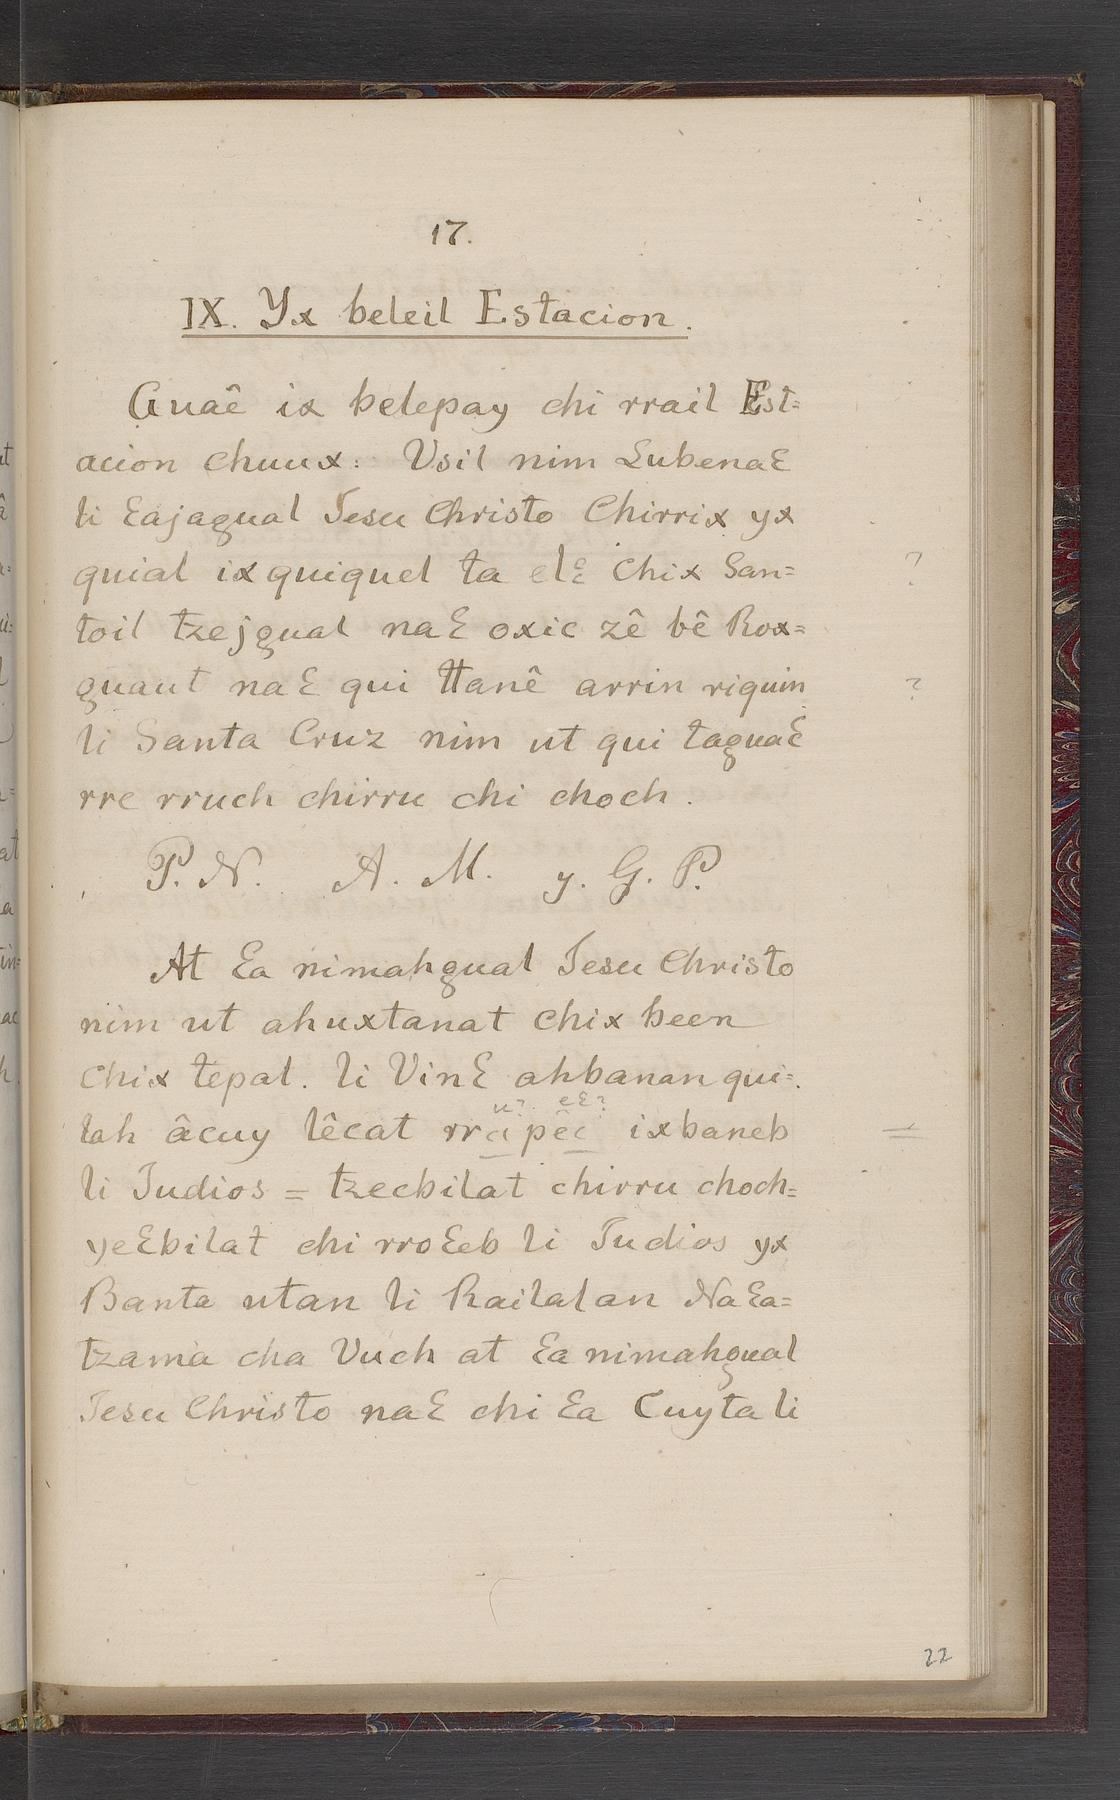 17.
IX. Yx beleil Estacion.
Guaê ix belepay chi rrail Est=
acion chuux: Vsil nim Lubenaɛ
li ɛajagual Jesu Christo Chirrix yx
quial ix quiquel ta el Chix San=
toil tzejgual naɛ oxic zê bê Rox=
guaut naɛ qui ttanê arrin riquin
li Santa Cruz nim ut qui taguaɛ
rre rruch chirru chi choch.
P. N. A. M. y. G. P.
At ɛa nimahgual Jesu Christo
nim ut ahuxtanat Chix been
Chix tepal. li Vinɛ ahbanan qui=
u? eɛ?
lah âcuy lêcat rrapêc ixbaneb
li Judios = tzecbilat chirru choch=
yeɛbilat chi rroɛeb li Judios yx
Banta utan li Railal an Naɛa=
tzama cha Vuch at ɛa nimahgual
Jesu Christo naɛ chi ɛa Cuyta li
?
?
=
22